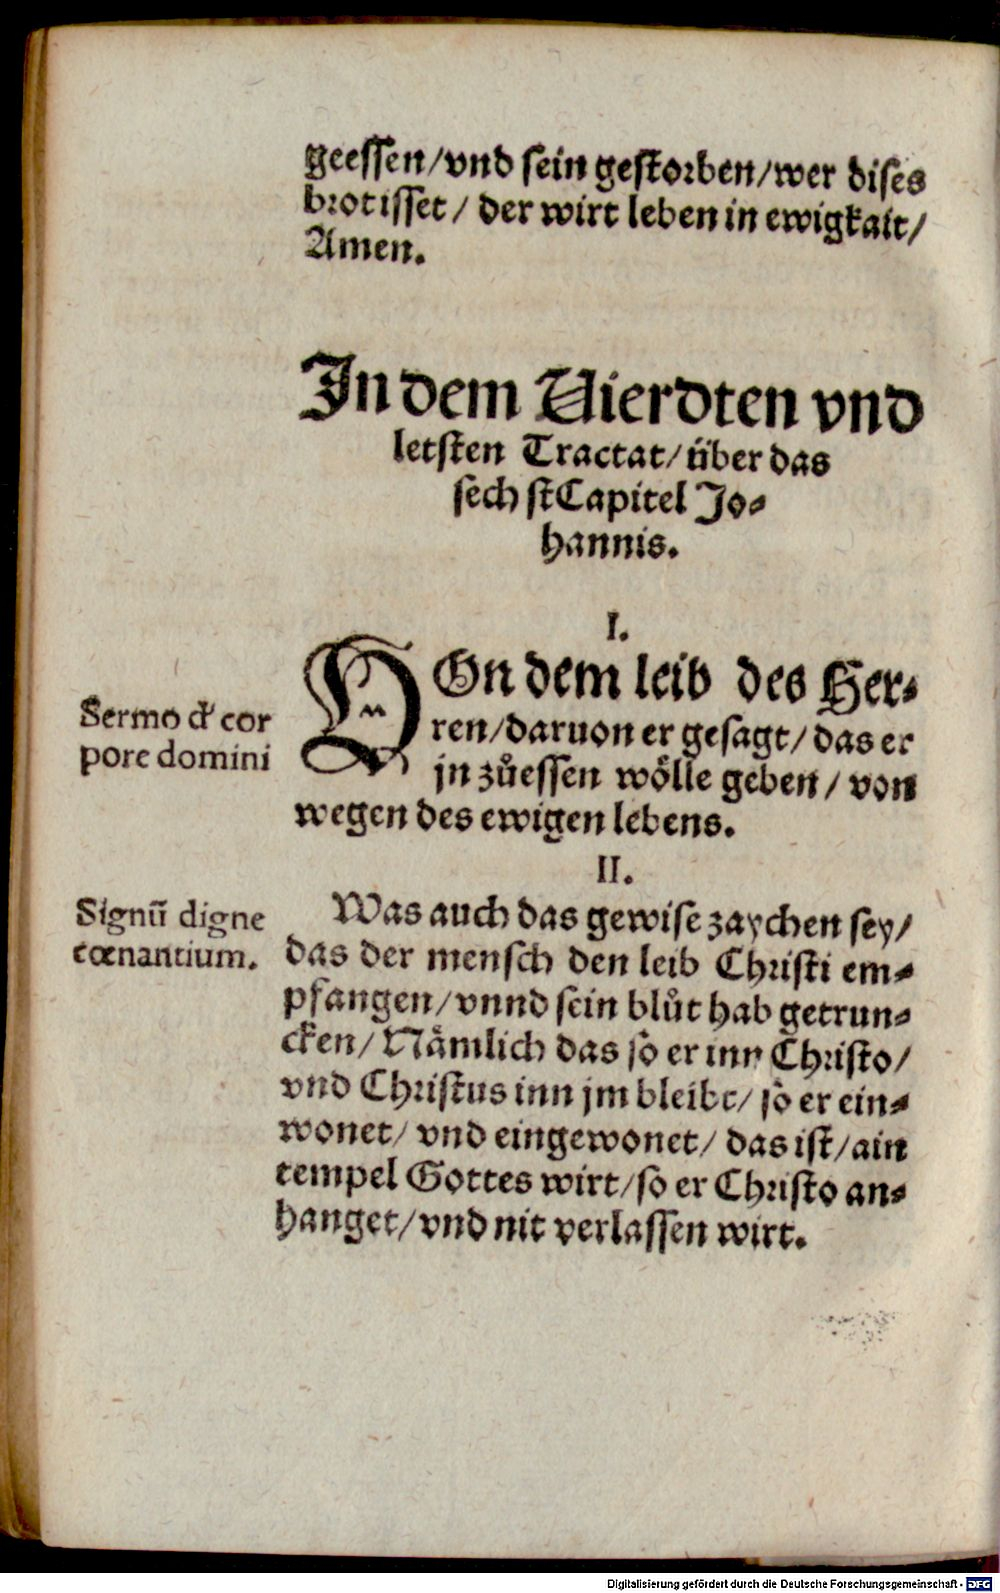 geessen/vnd sein gestorben/wer dises
brot isset/ der wirt leben in ewigkait/
Amen.
In dem Vierdten vnd
letsten Tractat/ über das
sech st Capitel Jo⸗
hannis.
I.
VOn dem leib des Her⸗
ren/daruon er gesagt/ das er
jn zůessen wölle geben/ von
wegen des ewigen lebens.
Sermo d' cor
pore domini
II.
Was auch das gewise zaychen sey/
das der mensch den leib Christi em⸗
pfangen/vnnd sein blůt hab getrun⸗
cken/ Nämlich das so er inn Christo/
vnd Christus inn jm bleibt/ so er ein⸗
wonet/ vnd eingewonet/ das ist/ain
tempel Gottes wirt/so er Christo an⸗
hanget/vnd nit verlassen wirt.
Signū digne
cœnantium.
Digitalisierung gefördert durch die Deutsche Forschungsgemeinschaft - DFG